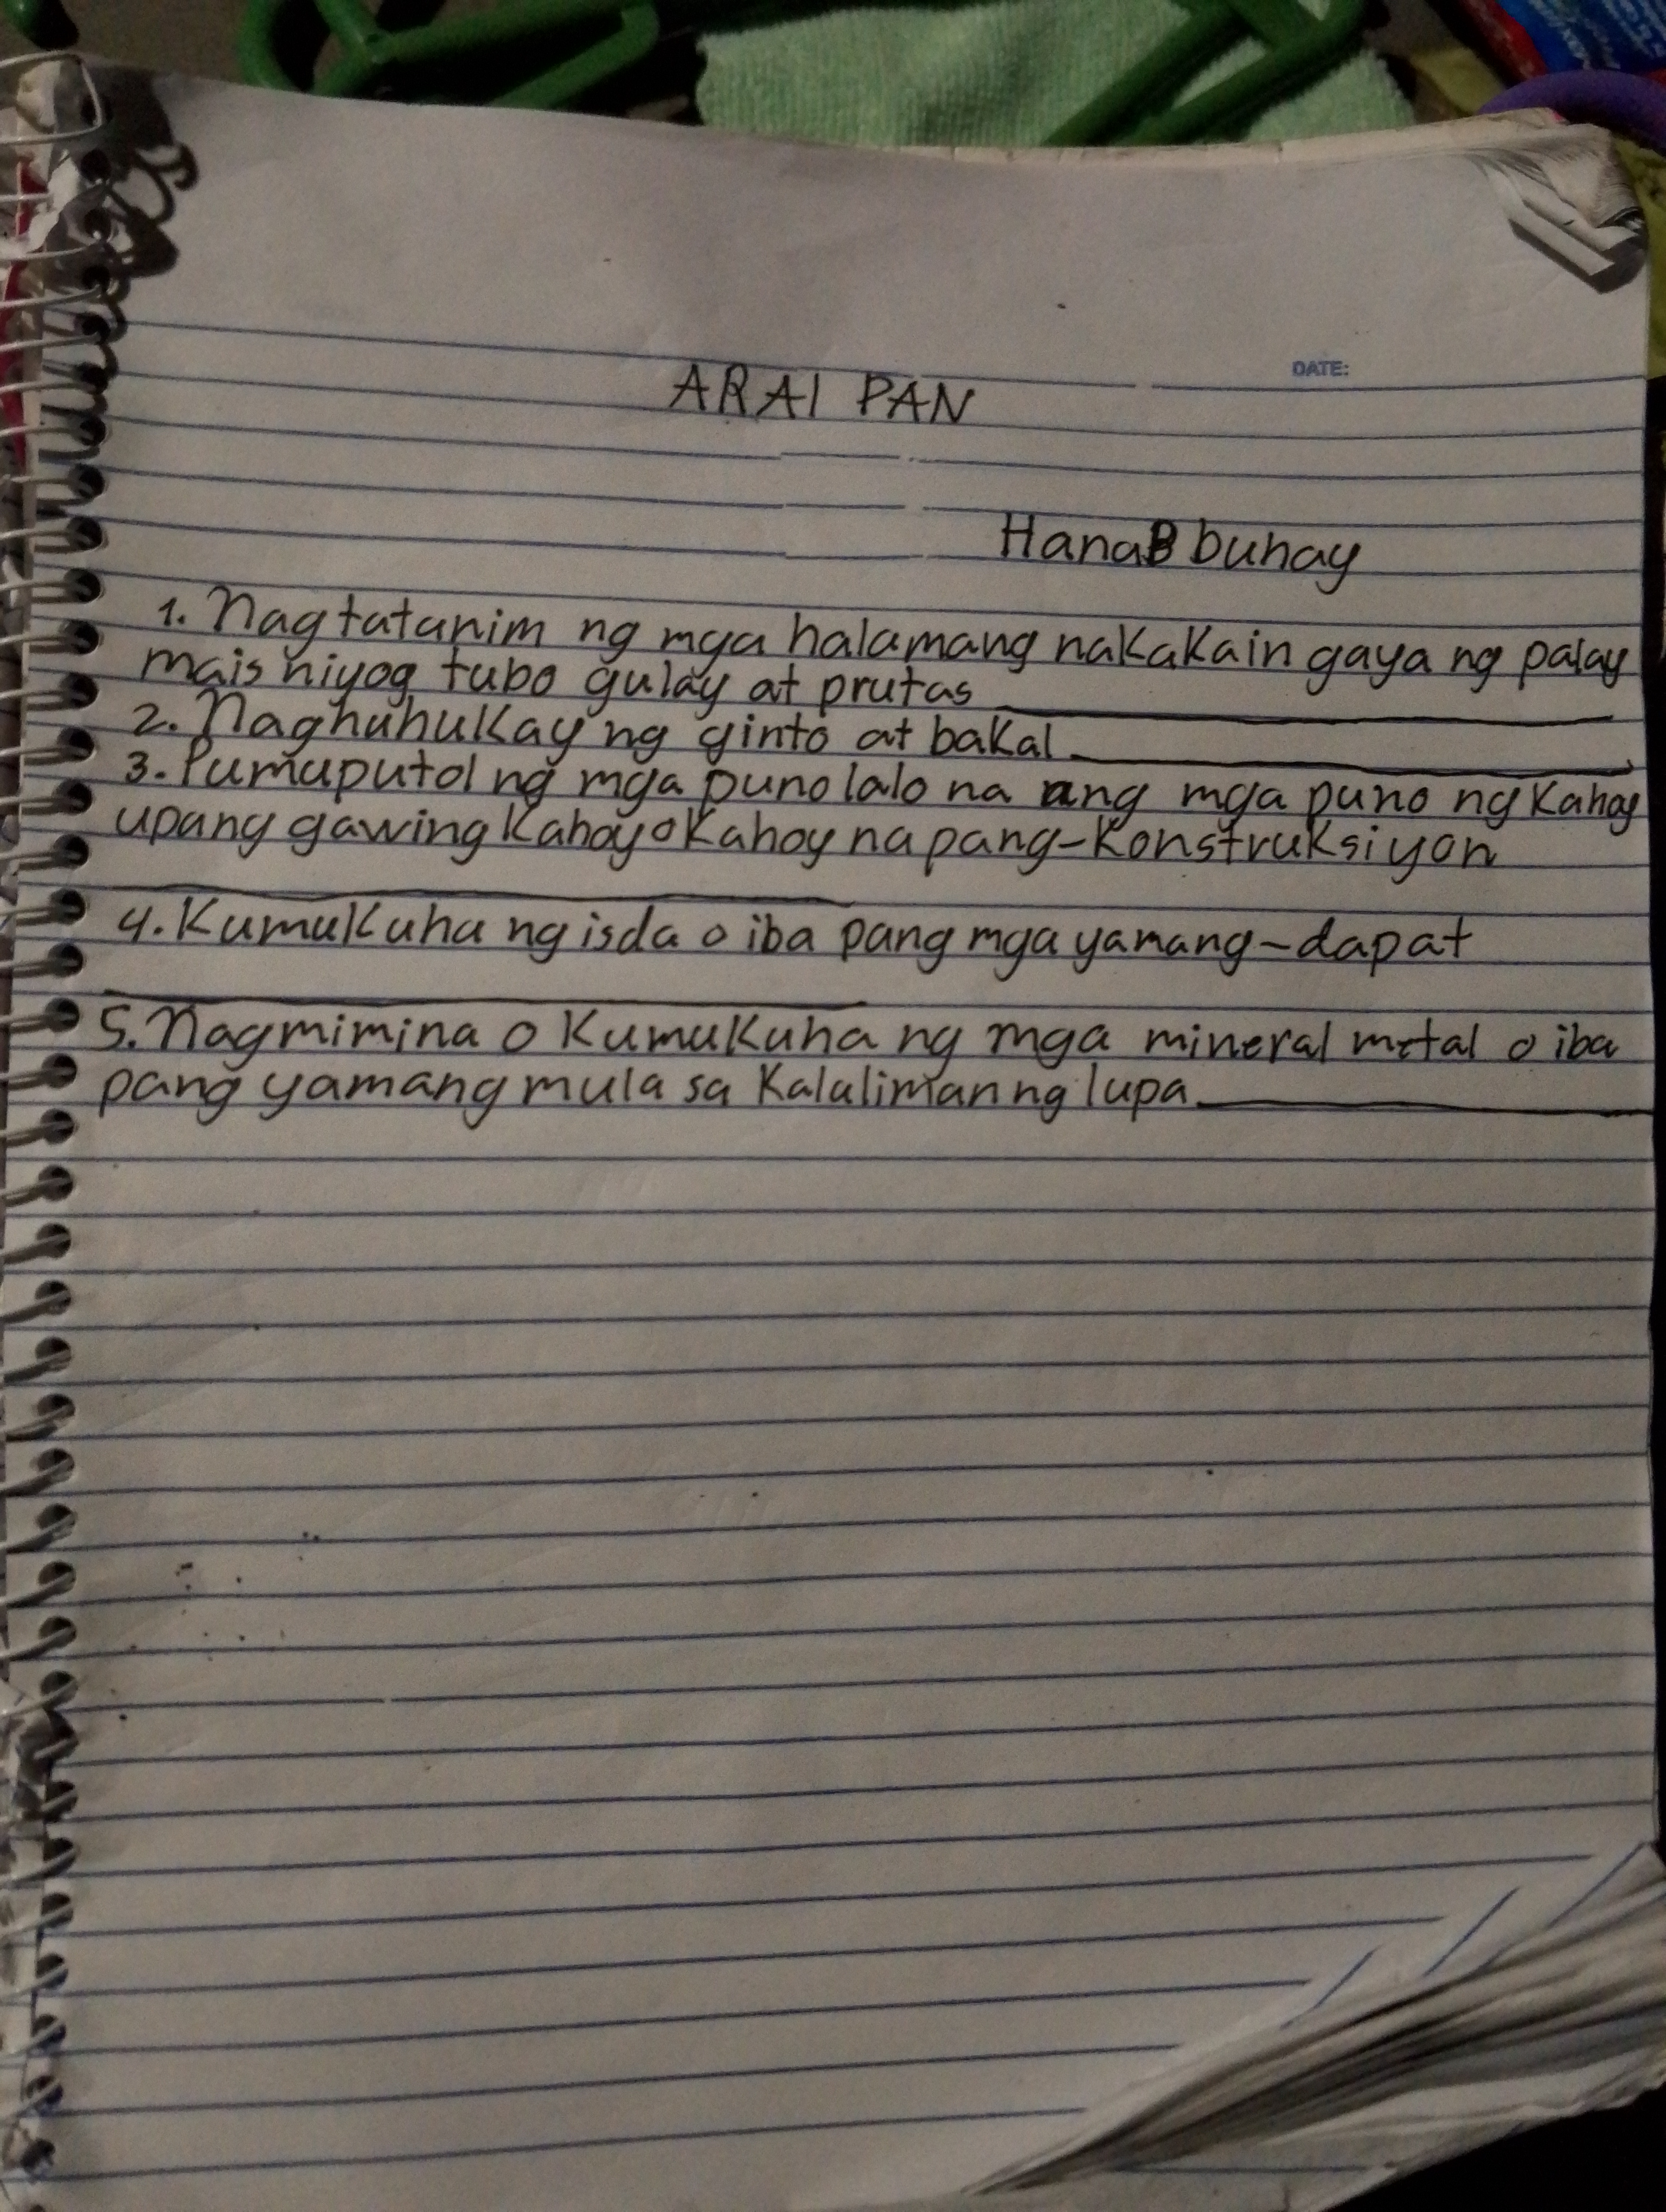 DATE:
ARAI PAN
HanaB buhay
1. Nagtatanim ng mga halamang nakakain gaya ng palay
mais niyog tubo gulay at prutas
2. Naghuhukay ng ginto at bakal
3. Pumuputol ng mga puno lalo na ang mga puno ng kahoy
upang gawing kahoy o kahoy na pang-konstruksiyon
4. Kumukuha ng isda o iba pang mga yamang-dapat
5. Nagmimina o kumukuha ng mga mineral metal o iba
pang yamang mula sa kalaliman ng lupa